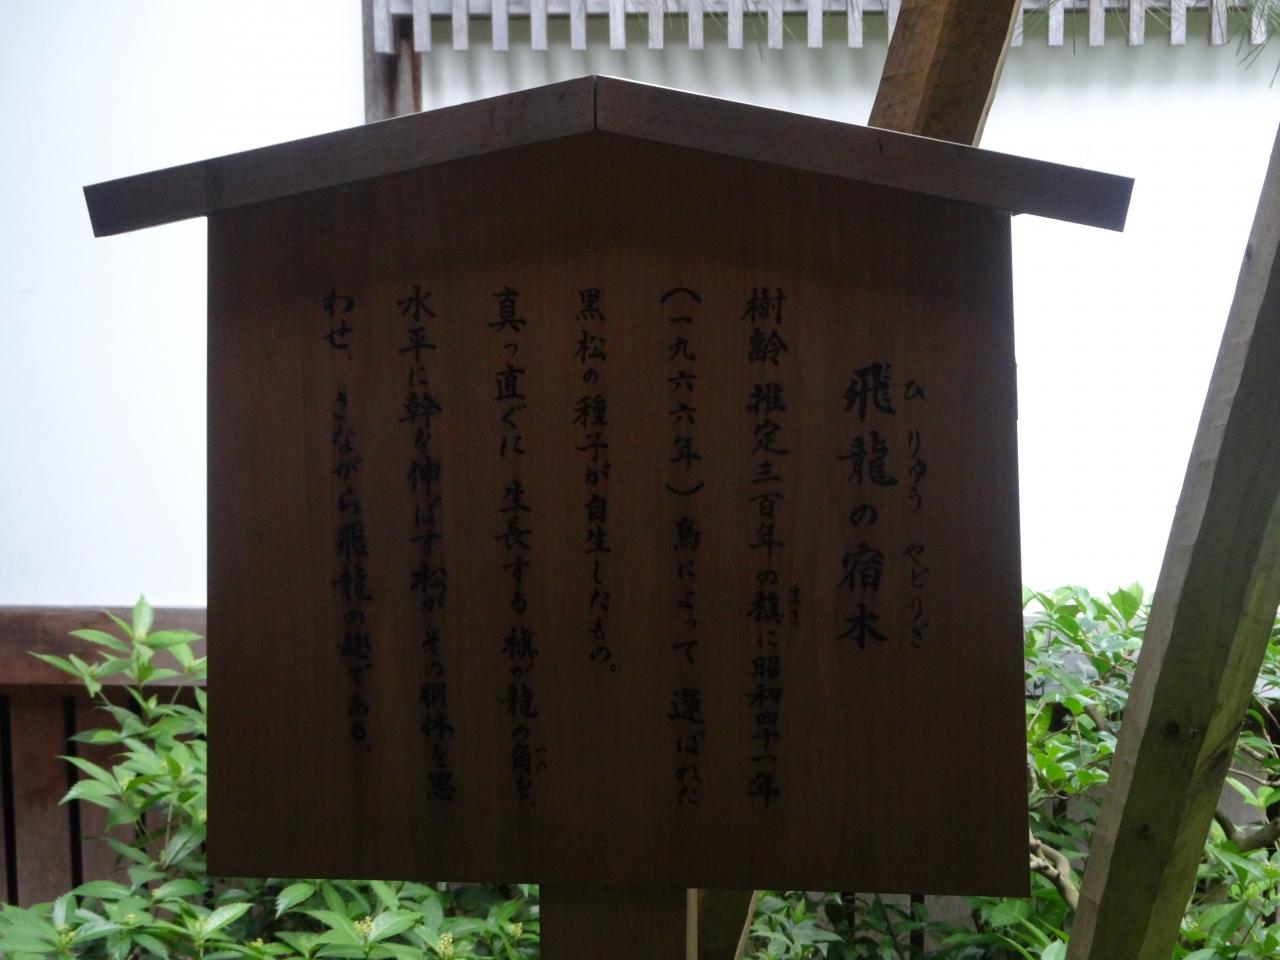 飛龍の宿木
ひりゅう やどりぎ
樹齢 推定三百年の槙に昭和四十一年
まき
(一九六六年)鳥によって 運ばれた
黒松の種子が自生したもの。
真っ直ぐに 生長する 槙が龍の角を、
つの
水平に幹を伸ばす松がその胴体を思
わせ、さながら飛龍の趣である。